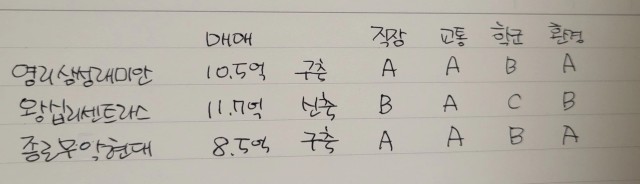 매매 직장 교통 학군 환경
영리삼성래미안 10.5억 구축 A A B A
왕십리센트라스 11.7억 신축 B A C B
종로무악현대 8.5억 구축 A A B A